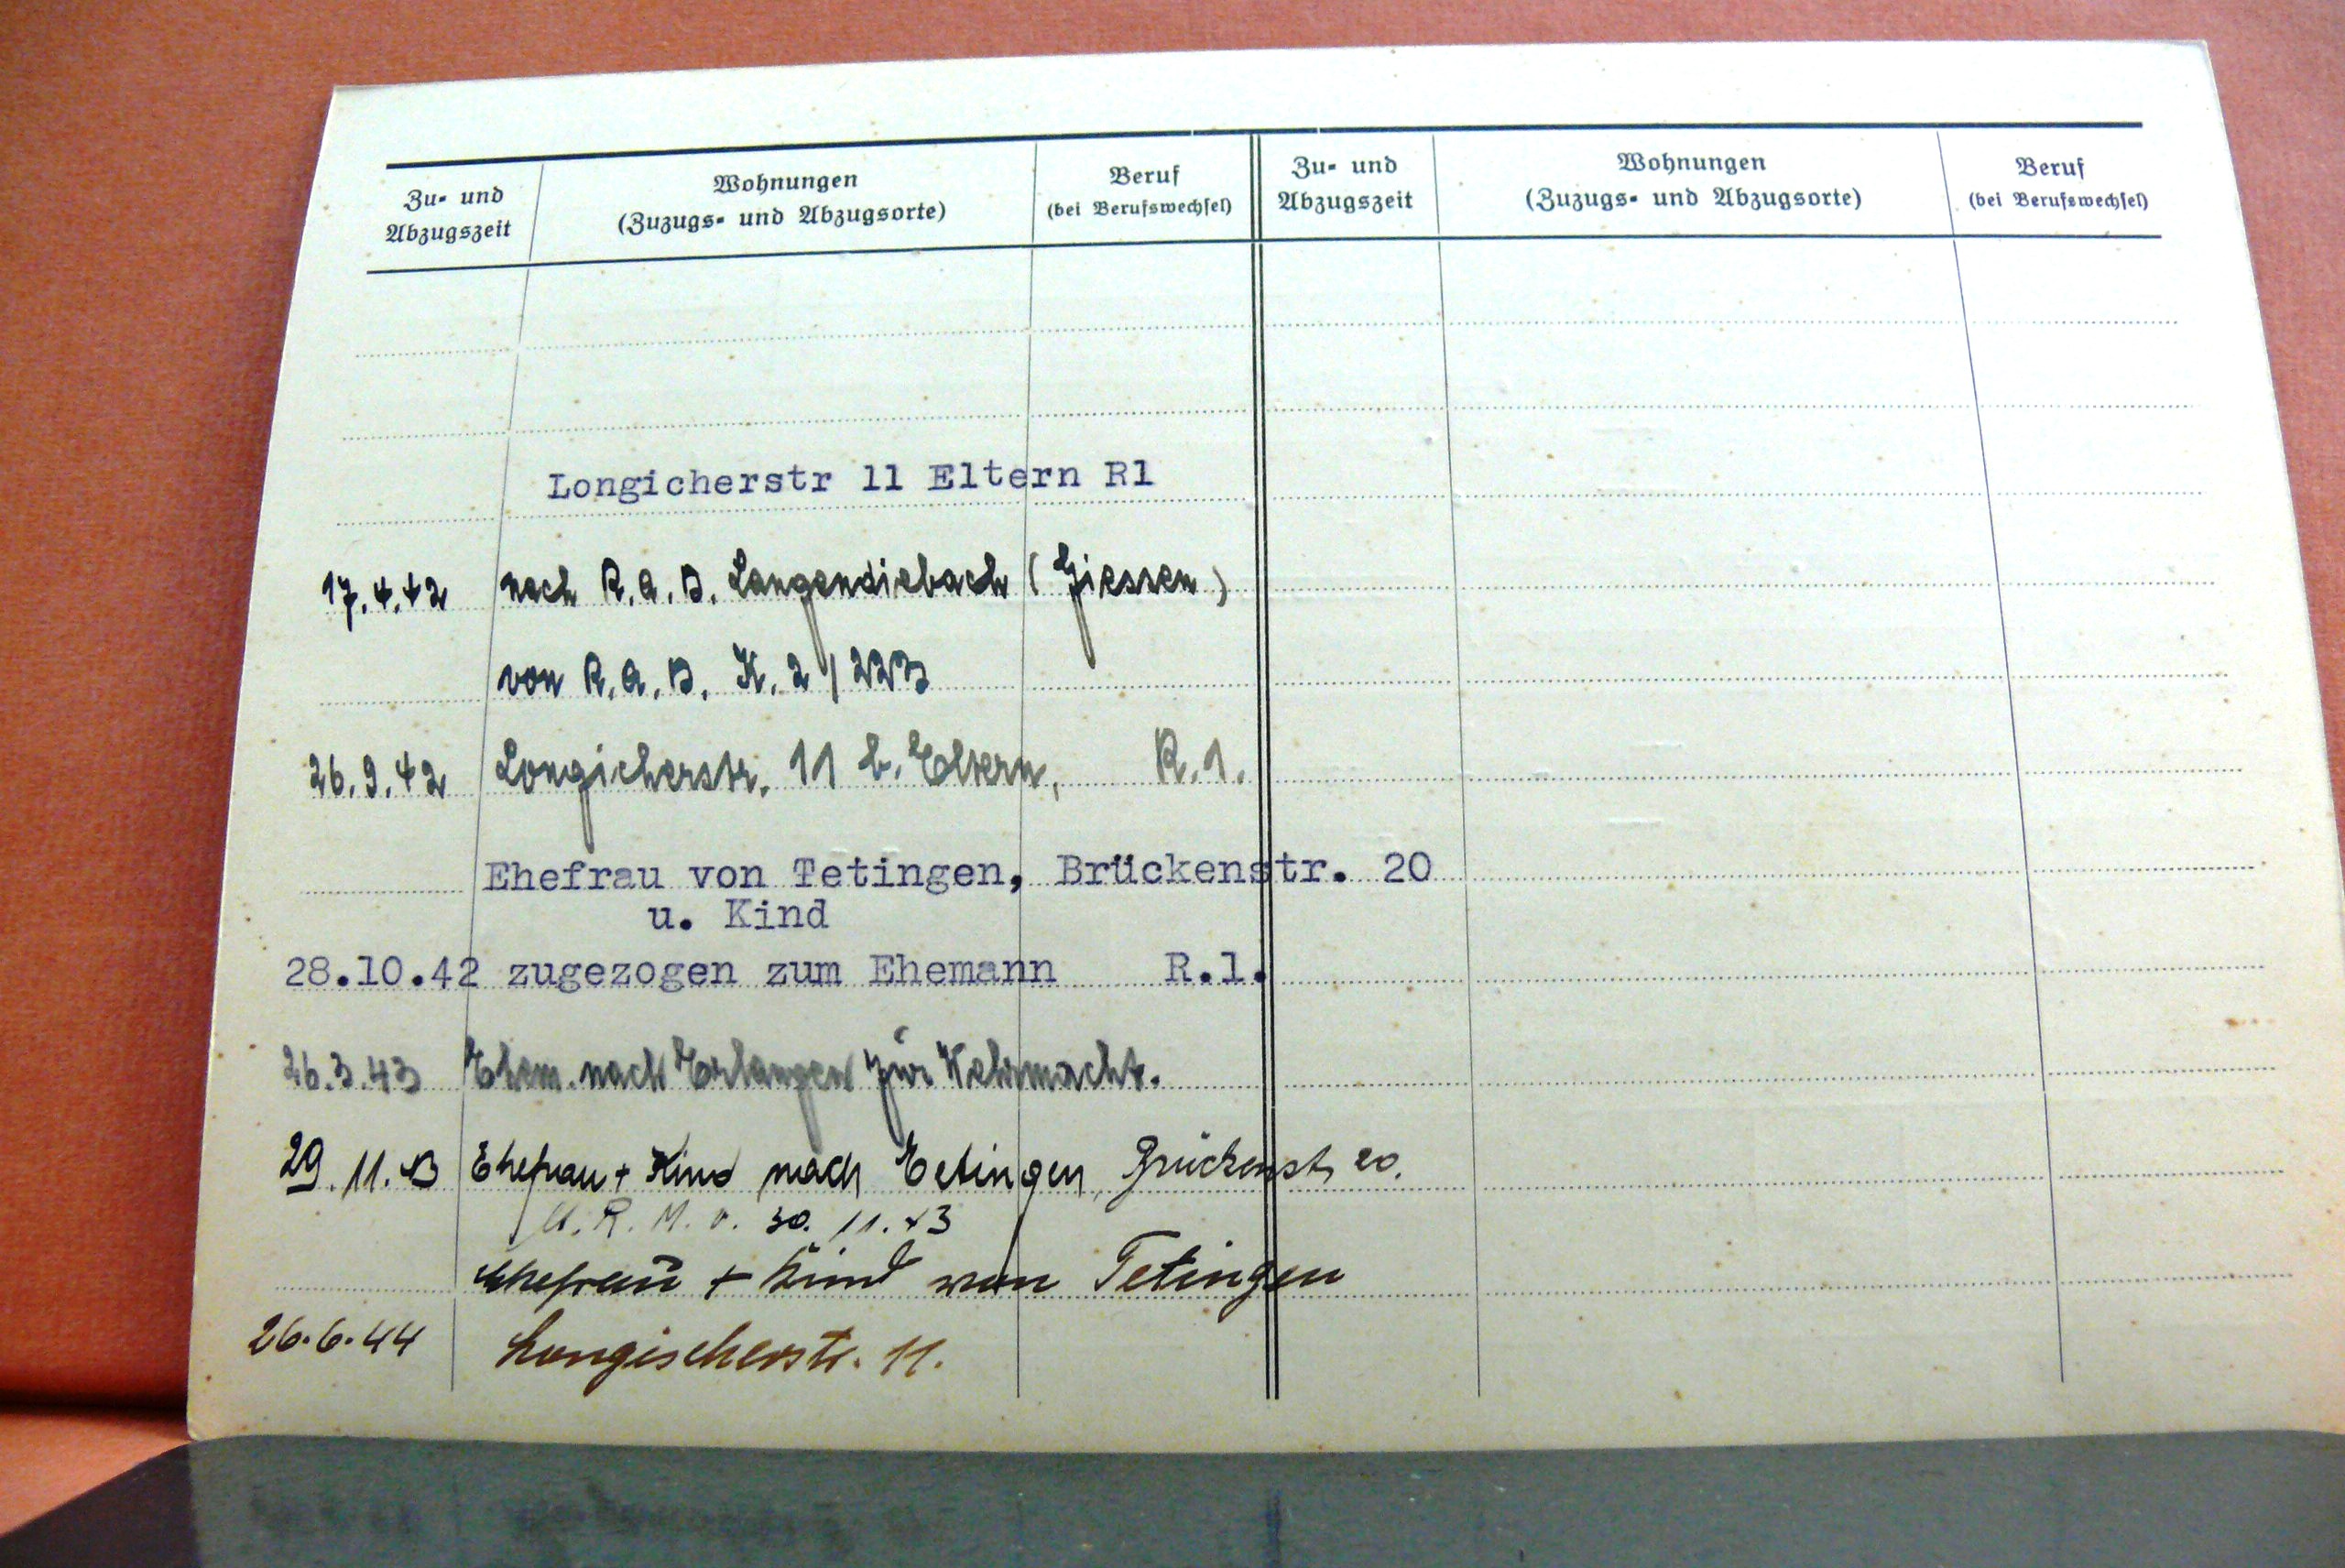 Zu- und Abzugszeit
Wohnungen
(Zuzugs- und Abzugsorte)
Beruf
(bei Berufswechsel)
Zu- und Abzugszeit
Wohnungen
(Zuzugs- und Abzugsorte)
Beruf
(bei Berufswechsel)
Longicherstr 11 Eltern R1
17.4.42 nach R.A.D. Langendiebach (Giessen)
von R.A.D. K. 2/223
26.9.42 Longicherstr. 11 b. Eltern, R.1.
Ehefrau von Tetingen, Brückenstr. 20
u. Kind
28.10.42 zugezogen zum Ehemann R.1.
26.3.43 Ehem. nach Erlangen zur Wehrmacht.
29.11.43 Ehefrau + Kind nach Tetingen, Brückenst. 20.
A.R.M.v. 30.11.43
Ehefrau + Kind von Tetingen
26.6.44 Longischerstr. 11.